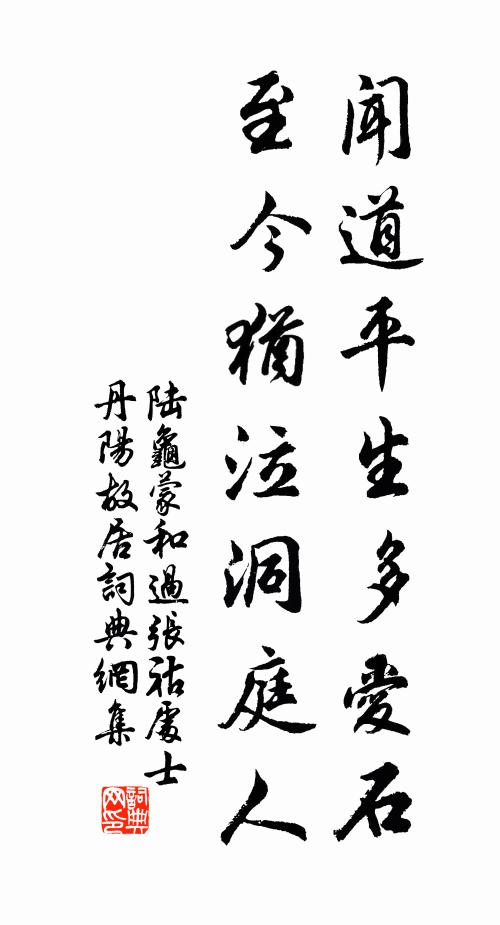 聞道平生多愛石
至今猶泣洞庭人
陆龜蒙和過張祜處士
丹陽故居詞典網集
詞典网印